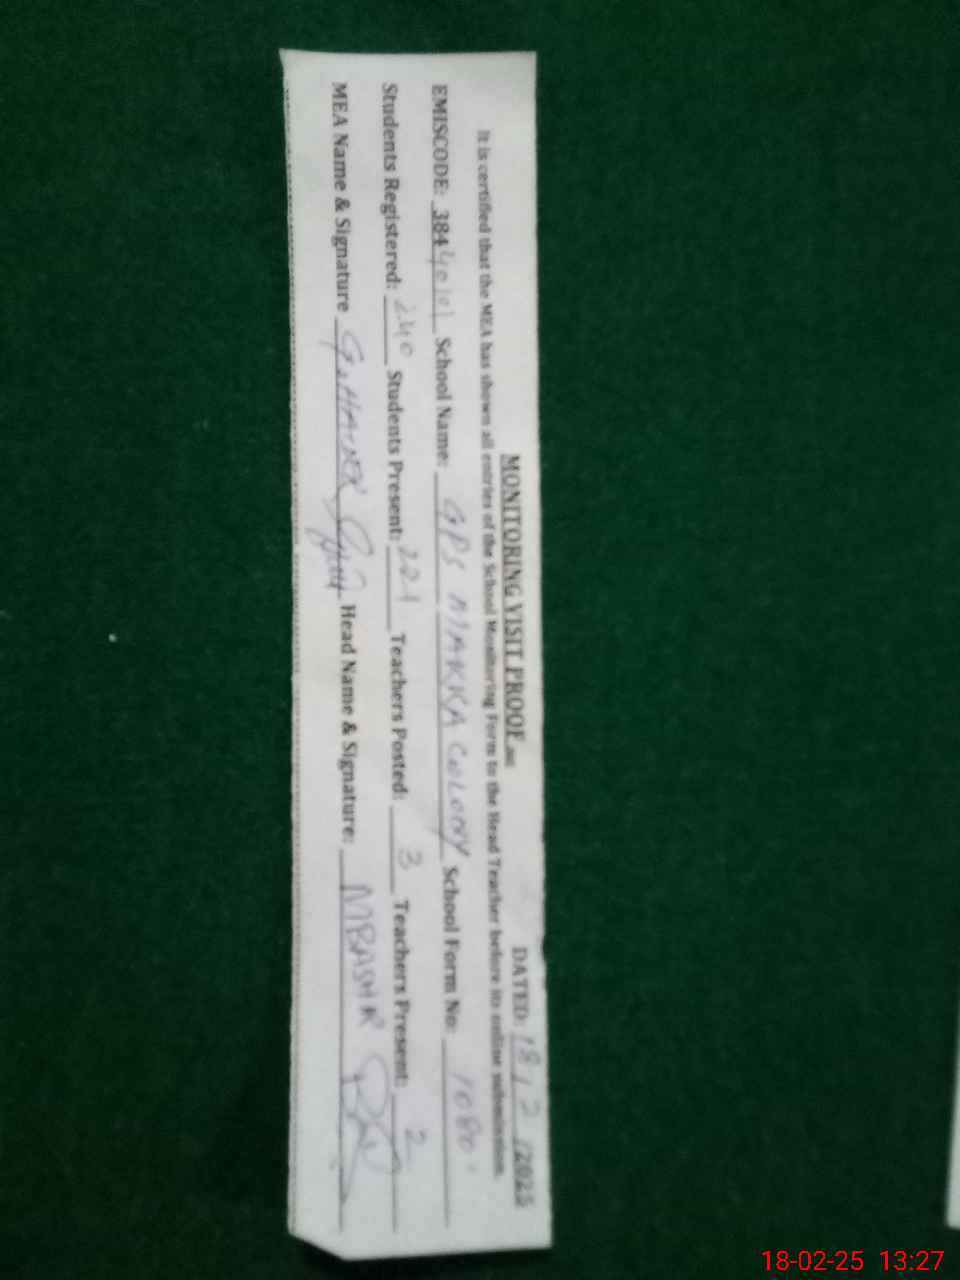 MONITORING VISIT PROOF DATED: 18/2/2025
It is certified that the MEA has shown all entries of the School Monitoring Form to the Head Teacher before its online submission.
EMISCODE: 38440101 School Name: GPS MAKKA COLONY School Form No: 1080
Students Registered: 240 Students Present: 221 Teachers Posted: 3 Teachers Present: 2
MEA Name & Signature Head Name & Signature: MBASHIR
18-02-25 13:27